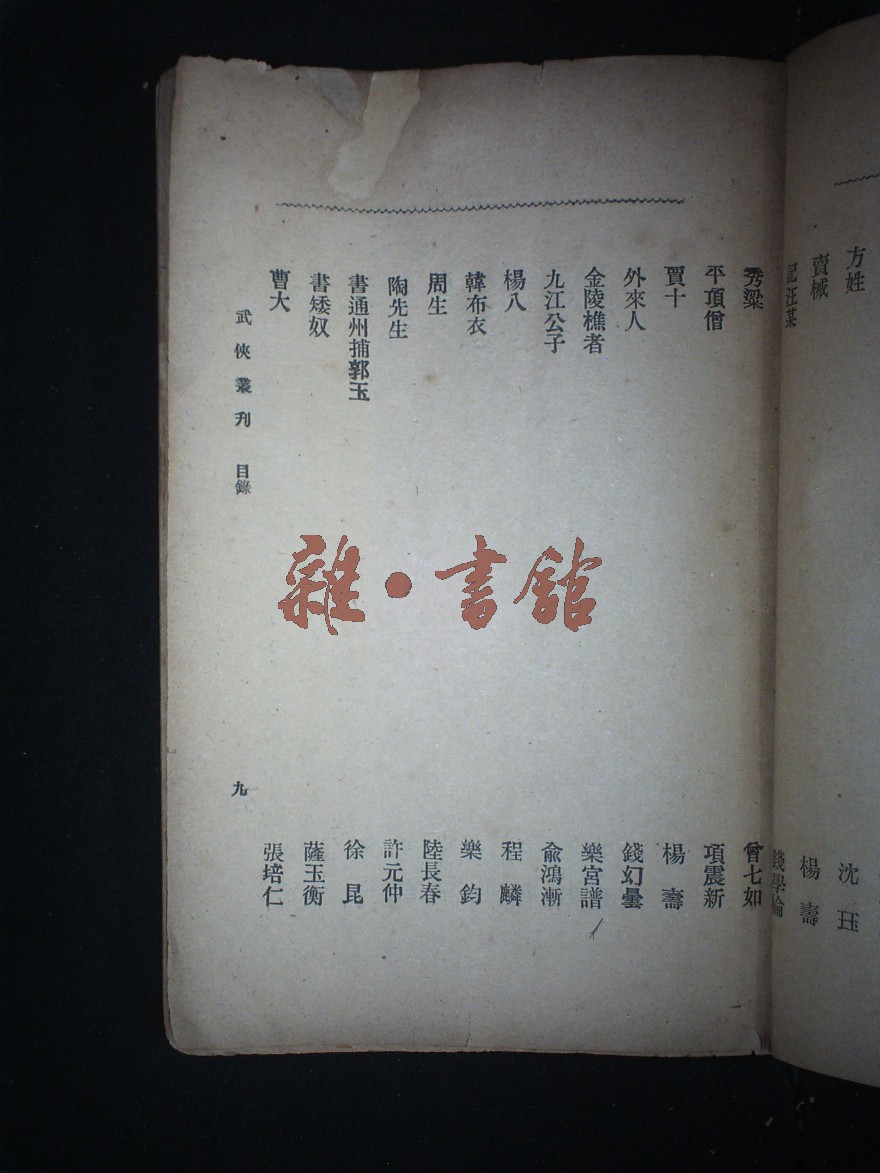 方姓 沈珏
賣械 楊壽
記汪某 錢學綸
秀粱 曾七如
平頂僧 項震新
賈十 楊壽
外來人 錢幻曇
金陵樵者 樂宮譜
九江公子 俞鴻漸
楊八 程麟
韓布衣 樂鈞
周生 陸長春
陶先生 許元仲
書通州捕郭玉 徐昆
書矮奴 薩玉衡
曹大 張培仁
武俠叢刋 目錄 九
雜·書館